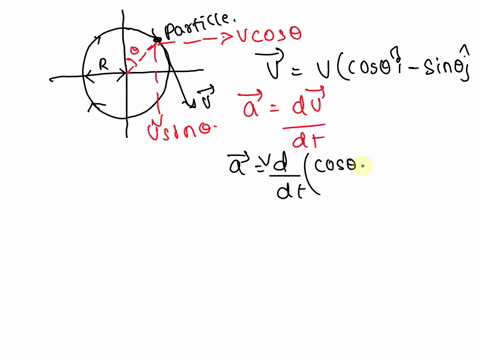 Particle.
θ
V cosθ
R
V⃗
V sinθ.
V⃗ = V(cosθ î - sinθ ĵ
a⃗ = dV⃗/dt
a⃗ = V d/dt (cosθ.